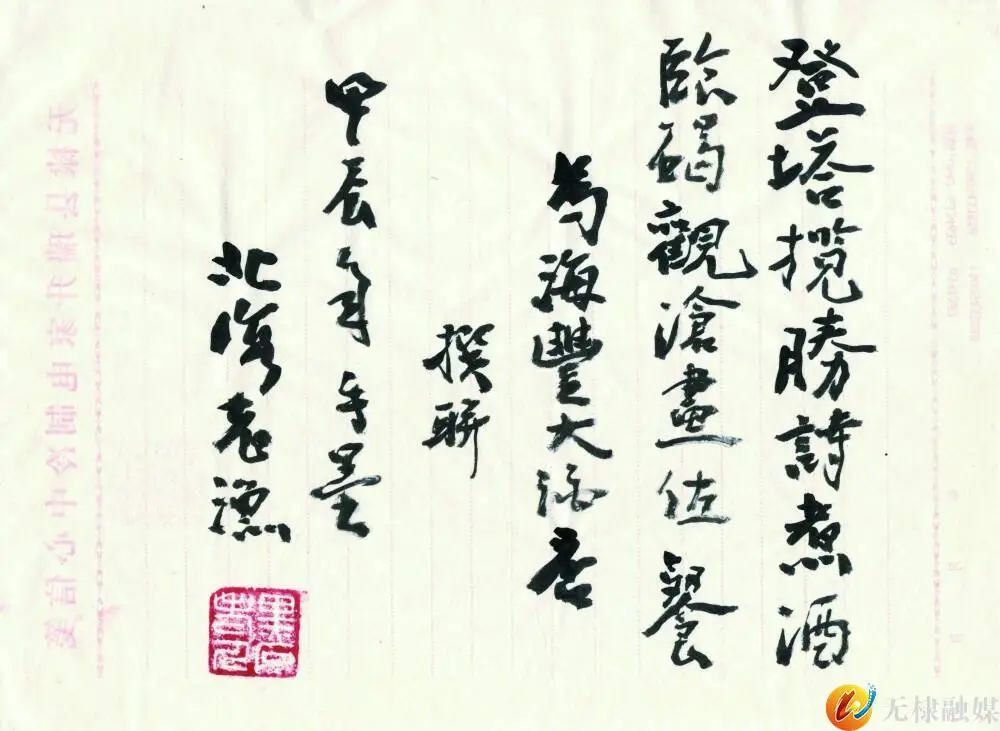 登塔揽勝詩煮酒
臨碣觀滄畫佐餐
為海豐大
撰聯
甲辰年手墨
北海老漁
无棣融媒